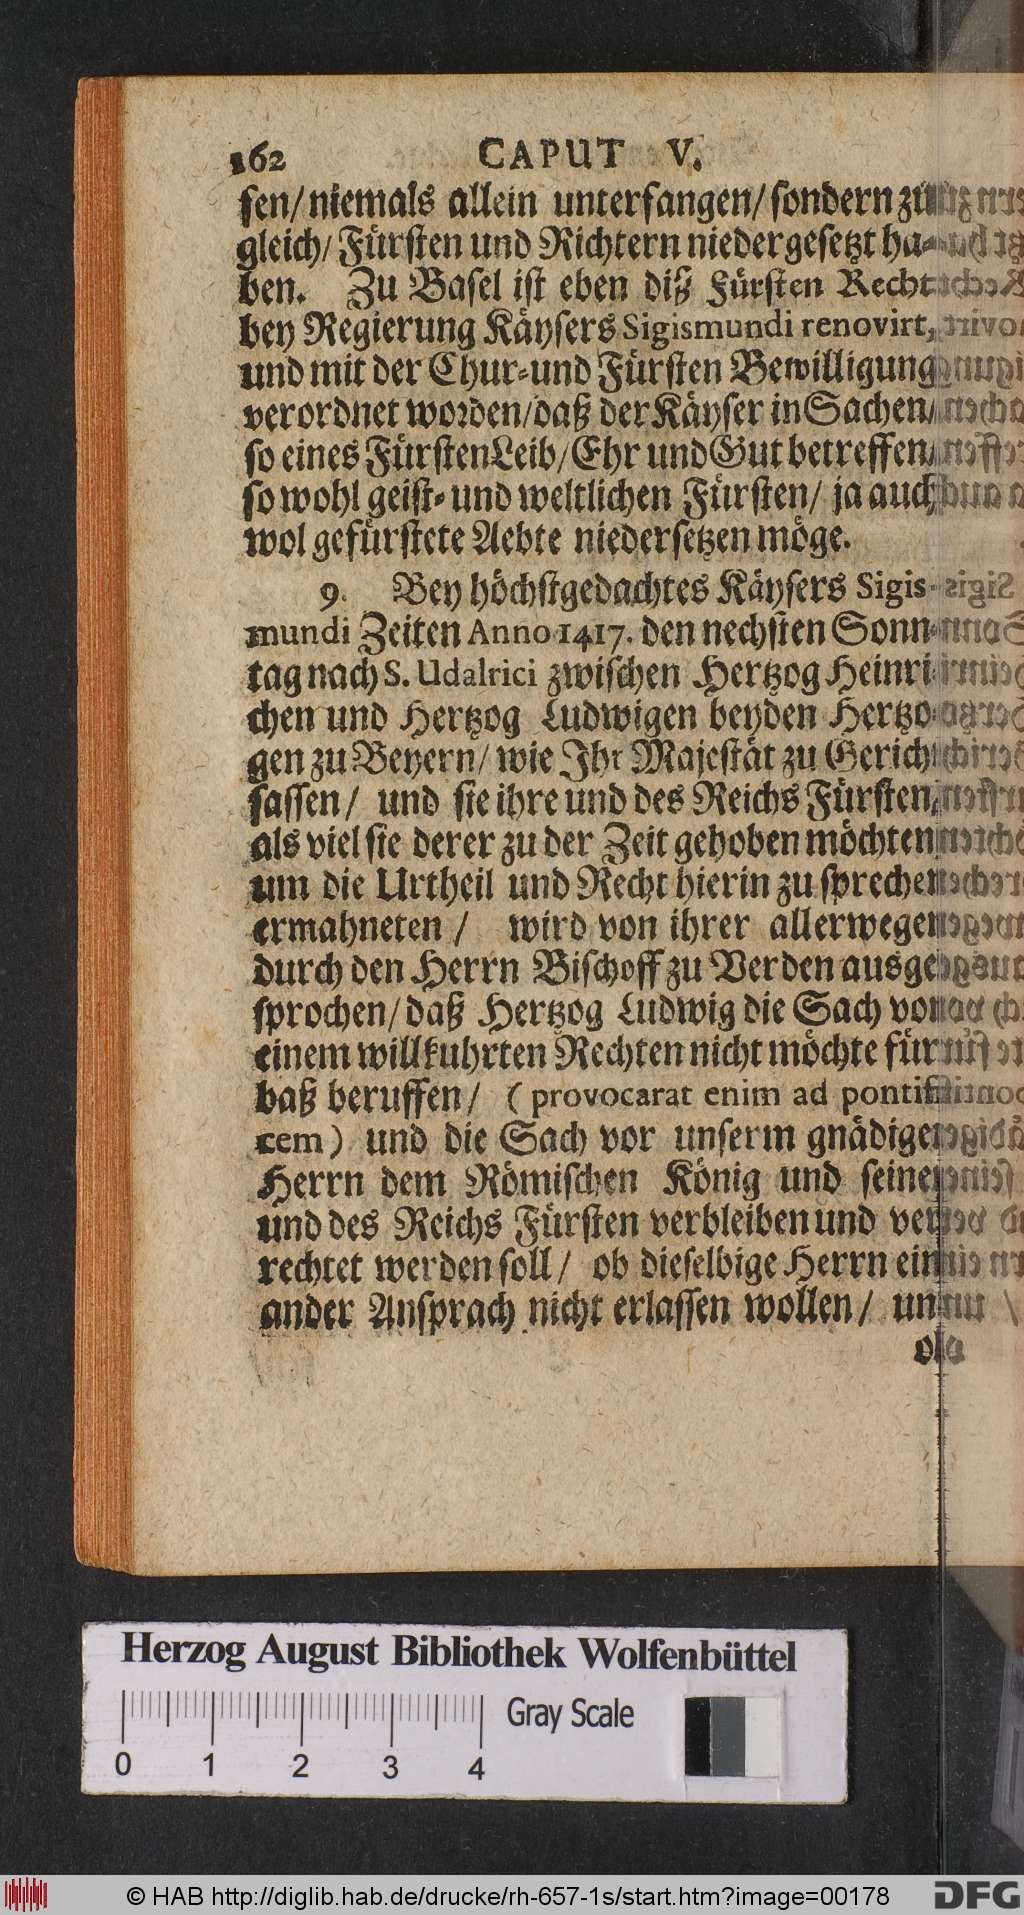 162 CAPUT V.
sen/ niemals allein unterfangen/ sondern zu-
gleich/ Fürsten und Richtern niedergesetzt ha-
ben. Zu Basel ist eben diß Fürsten Recht
bey Regierung Käysers Sigismundi renovirt,
und mit der Chur-und Fürsten Bewilligung
verordnet worden/ daß der Käyser in Sachen/
so eines Fürsten Leib/ Ehr und Gut betreffen/
so wohl geist- und weltlichen Fürsten/ ja auch
wol gefürstete Aebte niedersetzen möge.
9. Bey höchstgedachtes Käysers Sigis-
mundi Zeiten Anno 1417. den nechsten Sonn-
tag nach S. Udalrici zwischen Hertzog Heinri-
chen und Hertzog Ludwigen beyden Hertzo-
gen zu Beyern/ wie Ihr Majestät zu Gericht
sassen/ und sie ihre und des Reichs Fürsten/
als viel sie derer zu der Zeit gehoben möchten
um die Urtheil und Recht hierin zu sprechen
ermahneten/ wird von ihrer allerwegen
durch den Herrn Bischoff zu Verden ausge-
sprochen/ daß Hertzog Ludwig die Sach von
einem willkuhrten Rechten nicht möchte für-
baß beruffen/ (provocarat enim ad pontifi-
cem) und die Sach vor unserm gnädigen
Herrn dem Römischen König und seinen
und des Reichs Fürsten verbleiben und ver-
rechtet werden soll/ ob dieselbige Herrn ein-
ander Ansprach nicht erlassen wollen/ un
Herzog August Bibliothek Wolfenbüttel
Gray Scale
0 1 2 3 4
© HAB http://diglib.hab.de/drucke/rh-657-1s/start.htm?image=00178 DFG